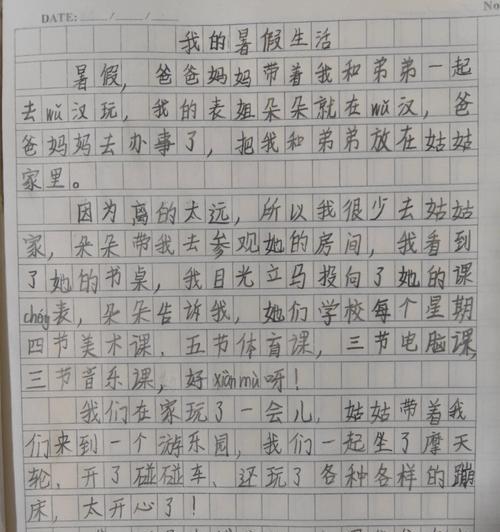 No
DATE: / /
我的暑假生活
暑假，爸爸妈妈带着我和弟弟一起
去wǔ汉玩，我的表姐朵朵就在wǔ汉，爸
爸妈妈去办事了，把我和弟弟放在姑姑
家里。
因为离的太远，所以我很少去姑姑
家，朵朵带我去参观她的房间，我看到
了她的书桌，我目光立马投向了她的课
chéng表，朵朵告诉我，她们学校每个星期
四节美术课、五节体育课，三节电脑课，
三节音乐课，好xiànmù呀！
我们在家玩了一会儿，姑姑带着我
们来到一个游乐园，我们一起坐了摩天
轮、开了碰碰车、还玩了各种各样的蹦
床，太开心了！